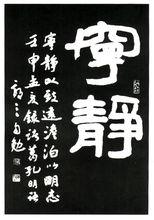 寧靜
寧靜以致遠澹泊以明志
壬申孟夏錄諸葛孔明語
自勉